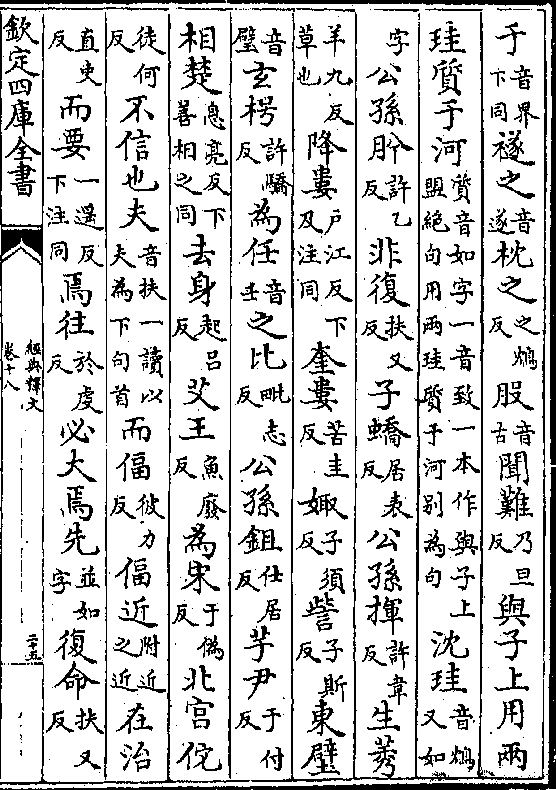 于音界下同襚之音遂枕之之鴆反股音古聞難乃旦反與子上用兩
珪質于河質音如字一音致一本作與子上盟絶句用兩珪質于河别為句沈珪音鴆又如
字公孫肸許乙反非復扶又反子蟜居表反公孫揮許韋反生莠
羊九反草也降婁戶江反下及注同奎婁苦圭反娵子須反訾子斯反東壁
音璧玄枵許驕反為任音壬之比毗志反公孫鉏仕居反芋尹于付反
相楚息亮反下善相之同去身起吕反艾王魚廢反為宋于偽反北宮佗
徒何反不信也夫音扶一讀以夫為下句首而偪彼力反偪近附近之近在治
直吏反而要一遥反下注同焉往於虔反必大焉先並如字復命扶又反
欽定四庫全書
經典釋文
卷十八
二十五